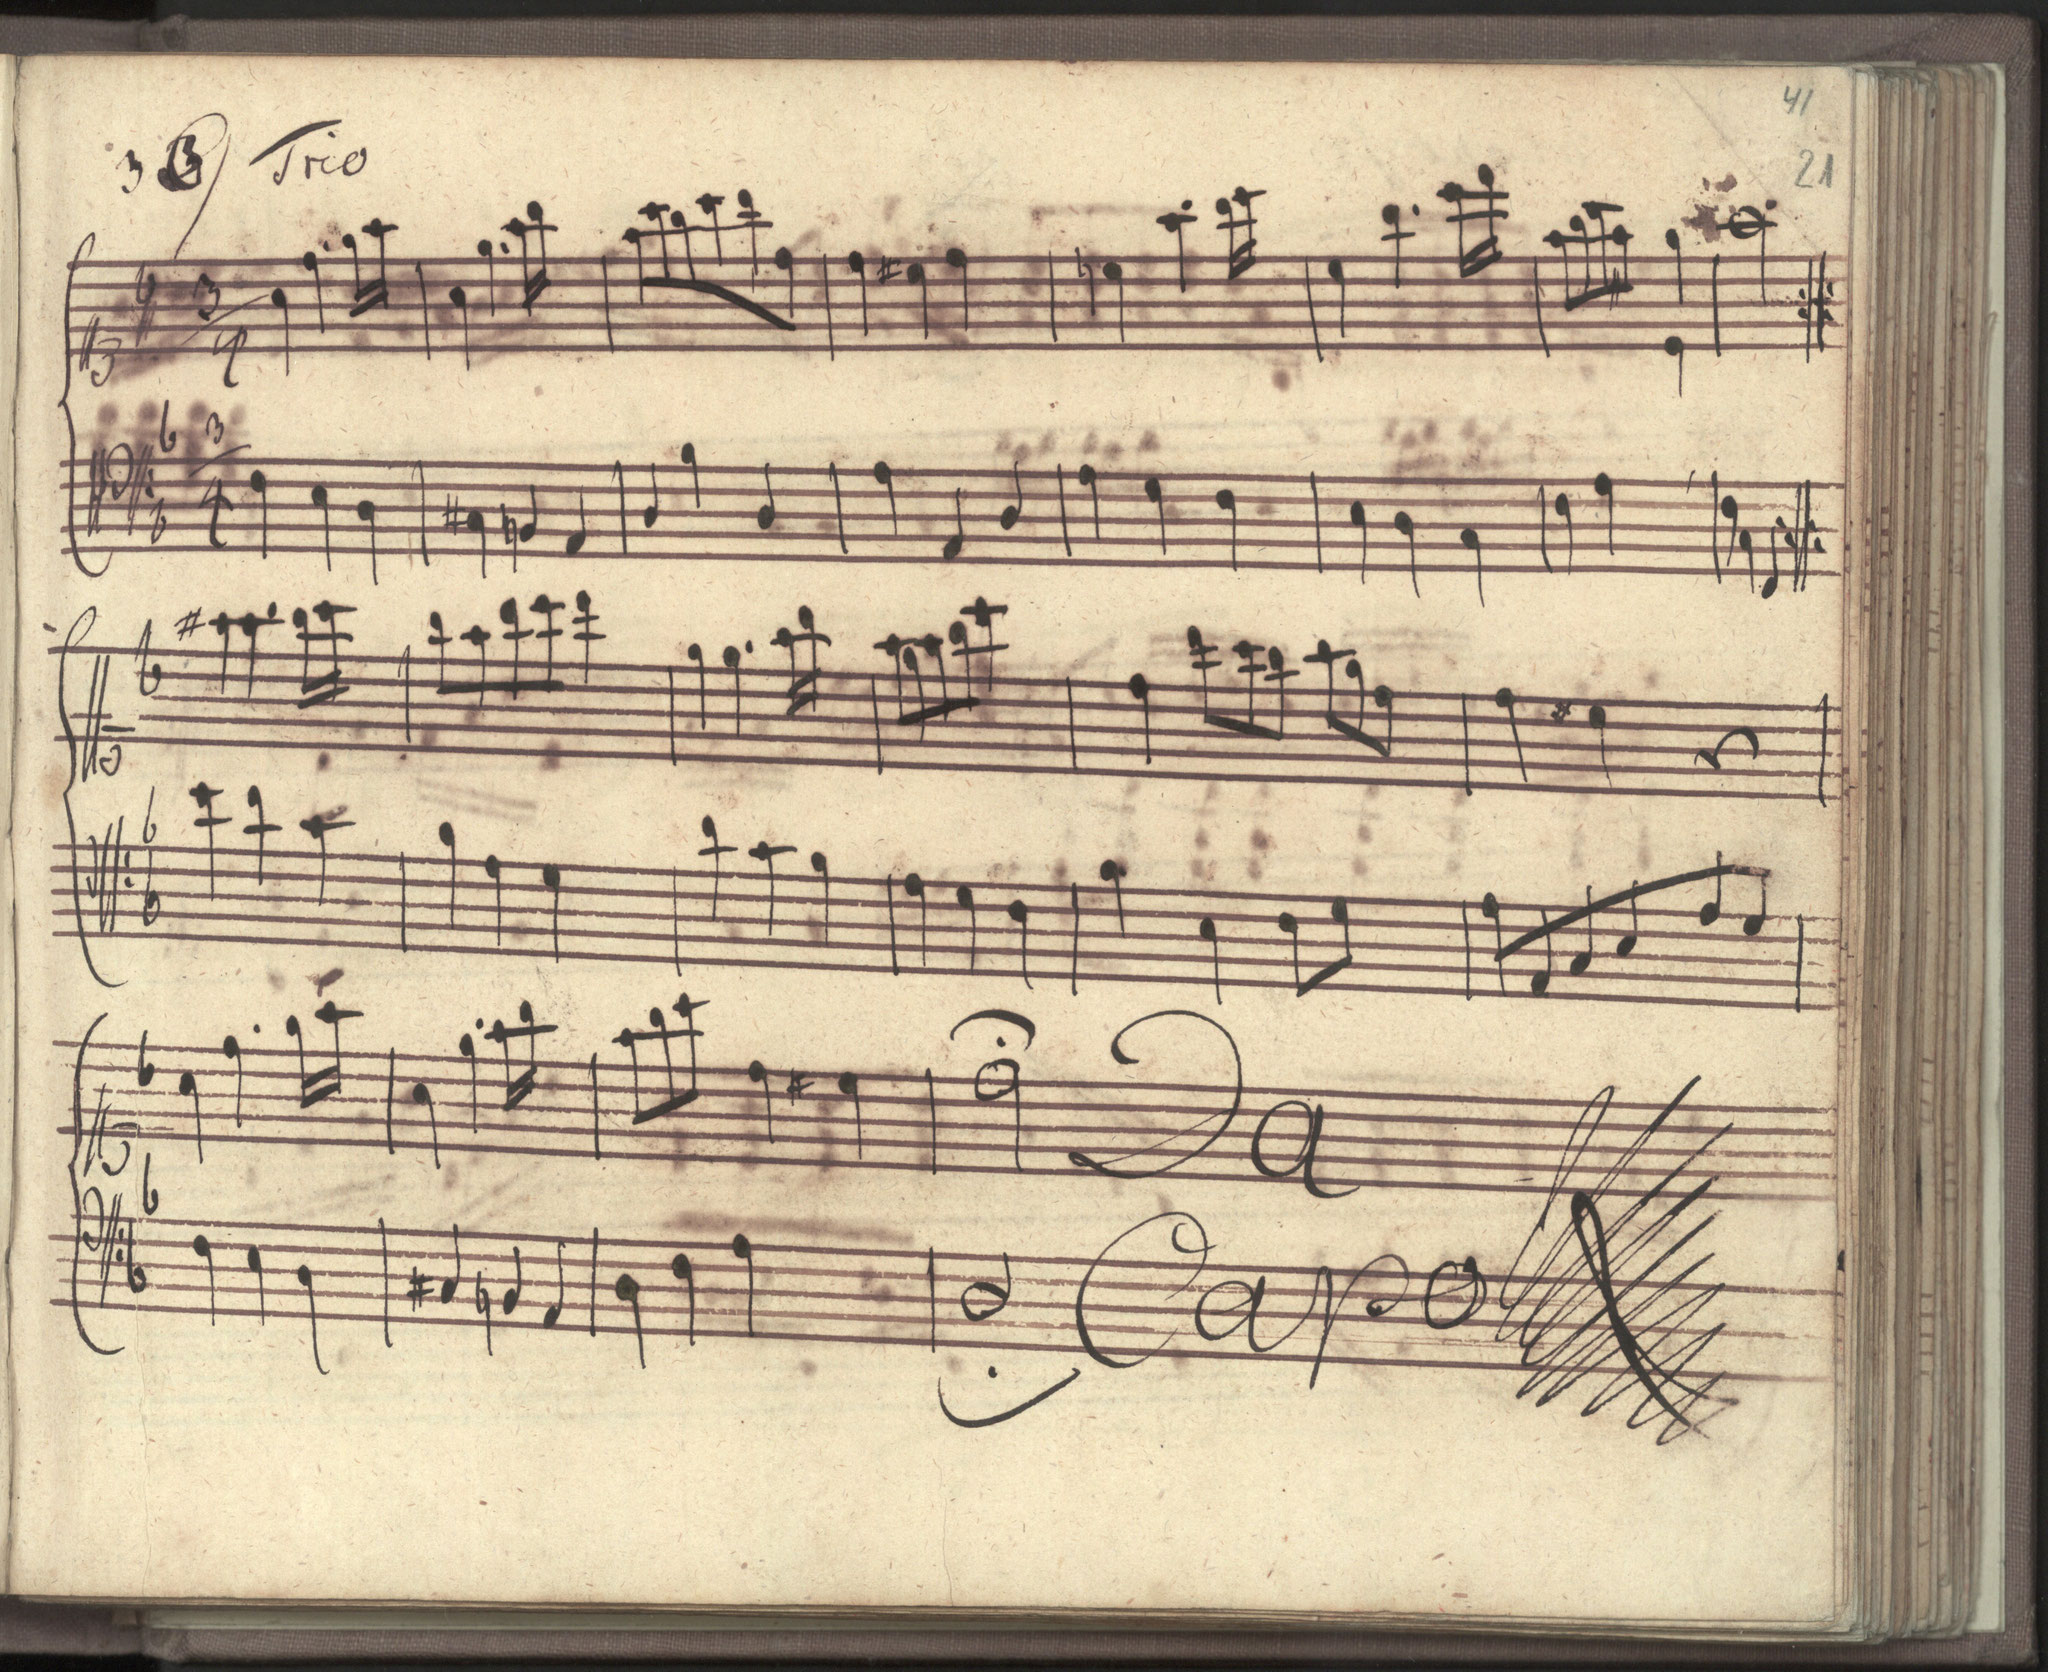 41
21
3 3) Trio
3
4
3
4
Da
Capo